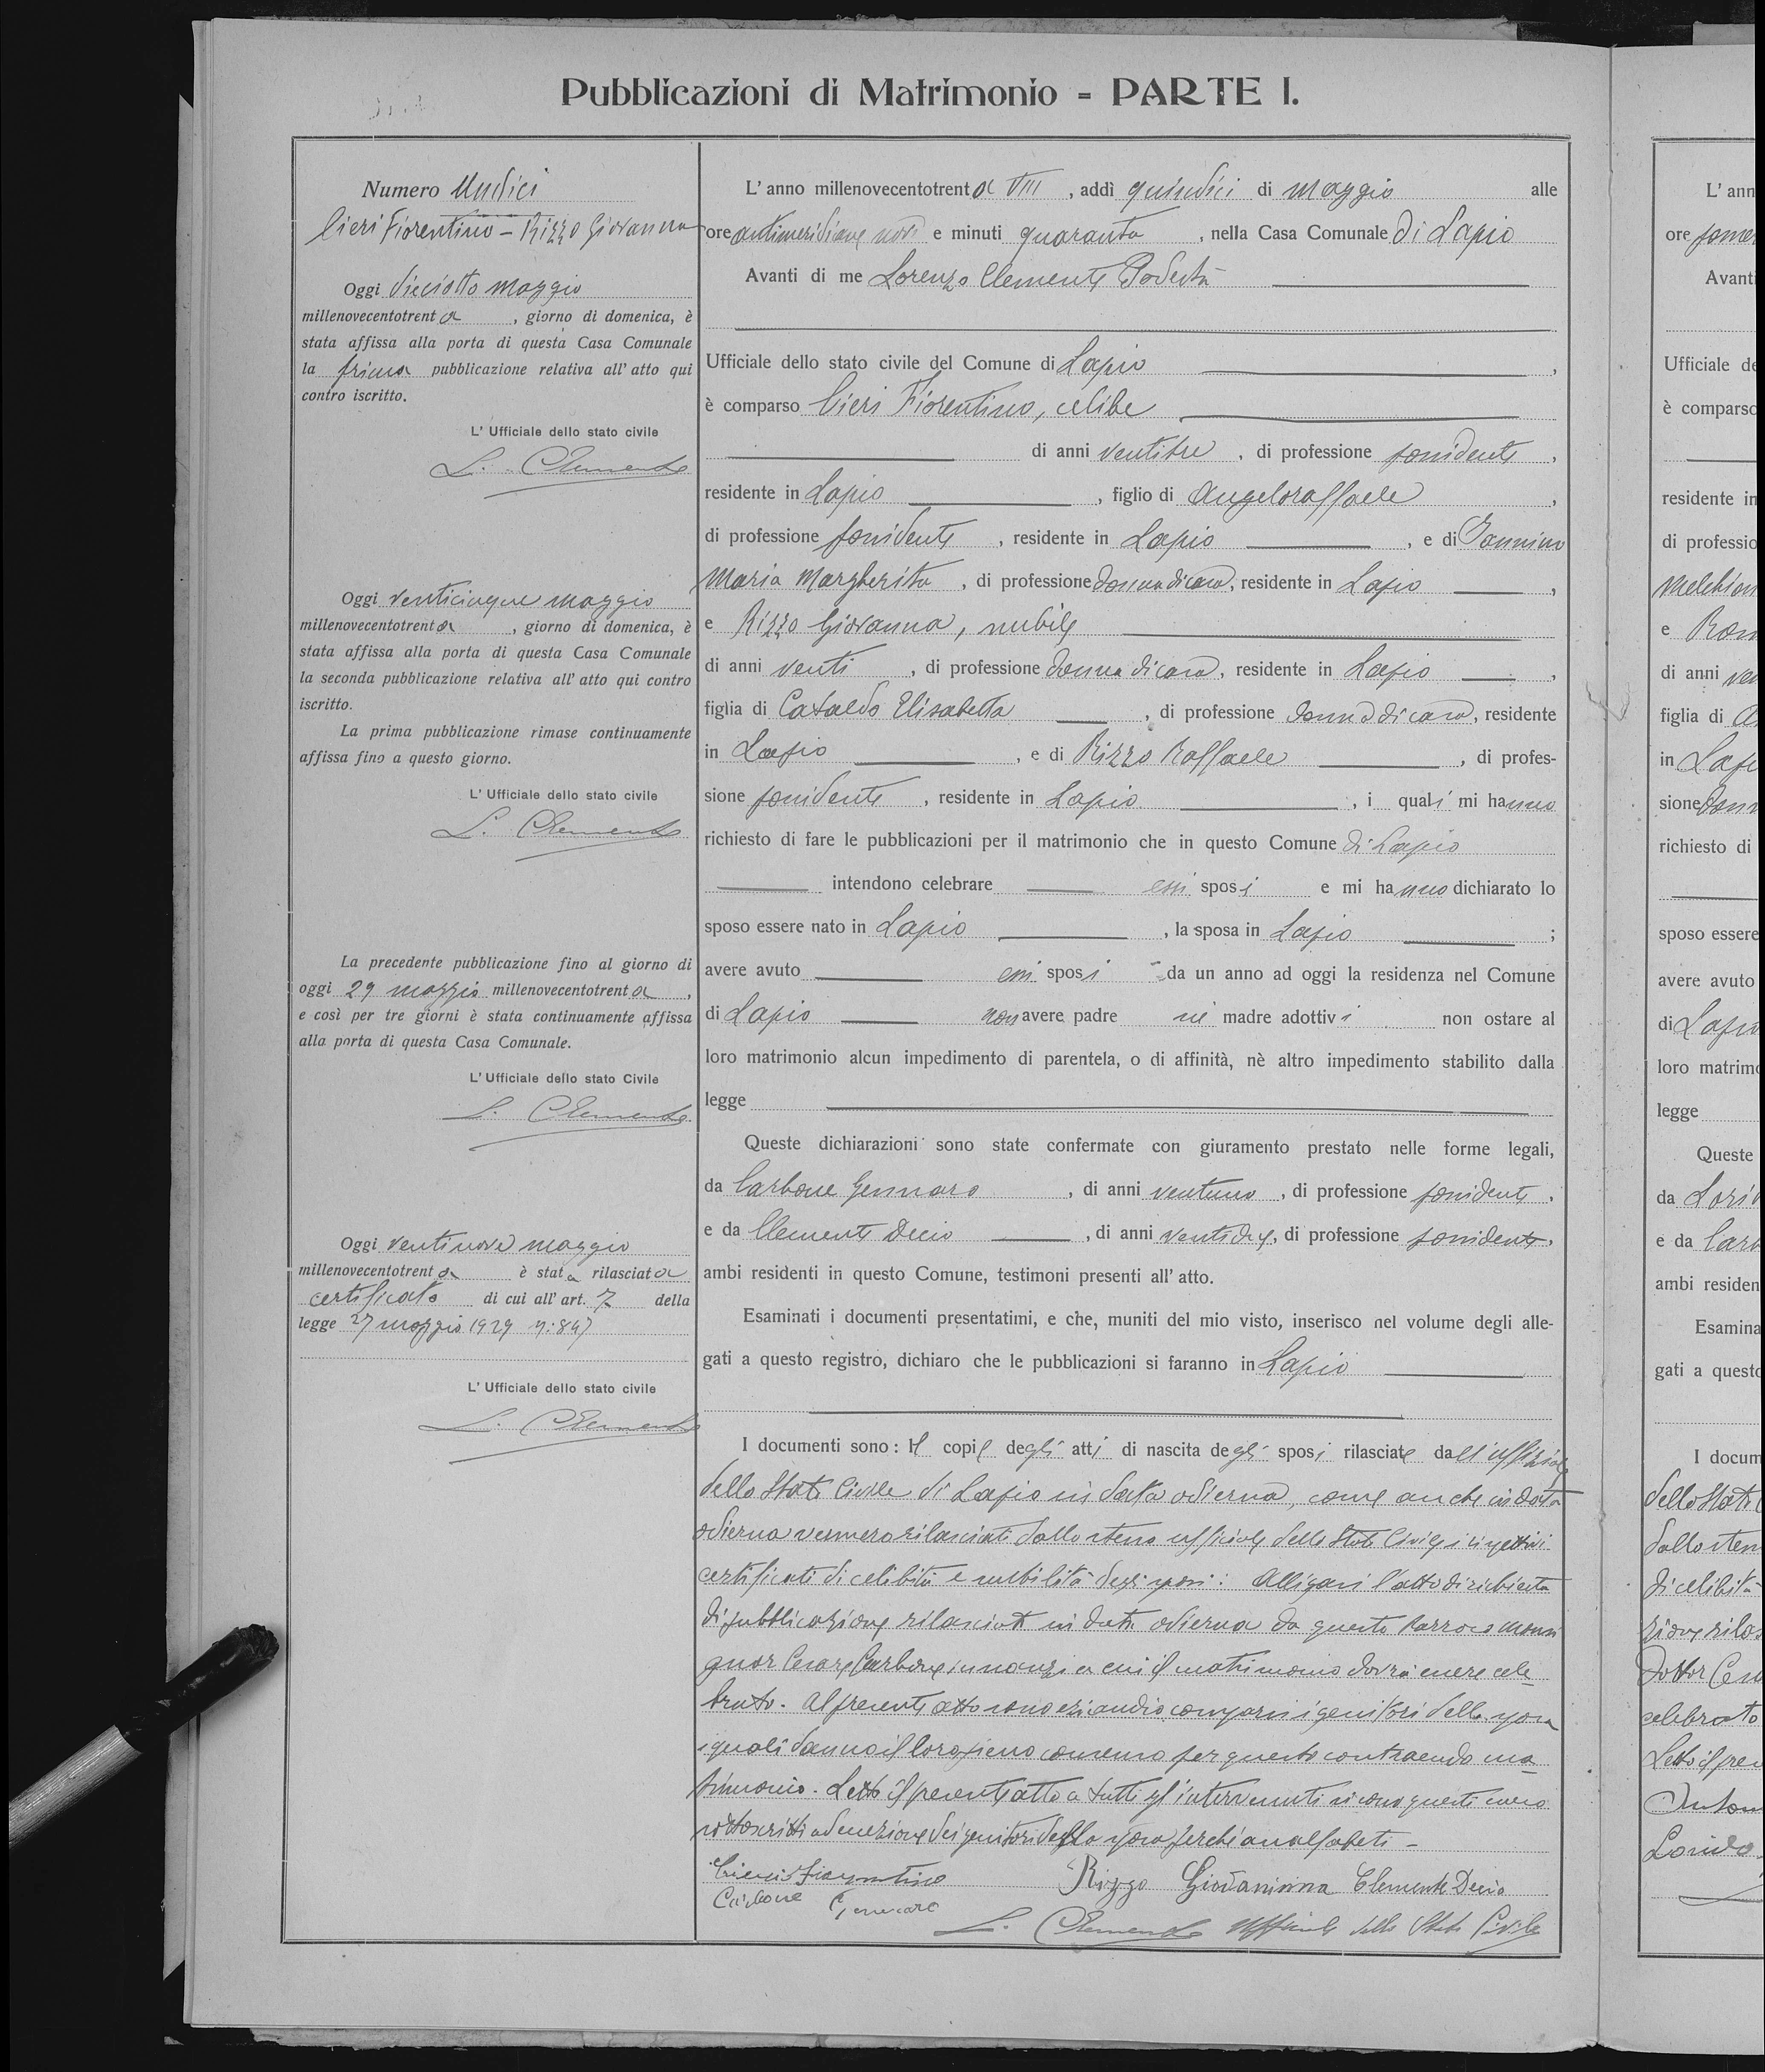 Pubblicazioni di Matrimonio - PARTE I.
Numero Undici
Cieri Fiorentino - Rizzo Giovanna
Oggi dieciotto maggio
millenovecentotrent a , giorno di domenica, è
stata affissa alla porta di questa Casa Comunale
la prima pubblicazione relativa all' atto qui
contro iscritto.
L' Ufficiale dello stato civile
L. Clemente
Oggi venticinque maggio
millenovecentotrent a , giorno di domenica, è
stata affissa alla porta di questa Casa Comunale
la seconda pubblicazione relativa all' atto qui contro
iscritto.
La prima pubblicazione rimase continuamente
affissa fino a questo giorno.
L' Ufficiale dello stato civile
L. Clemente
La precedente pubblicazione fino al giorno di
oggi 29 maggio millenovecentotrent a ,
e così per tre giorni è stata continuamente affissa
alla porta di questa Casa Comunale.
L' Ufficiale dello stato Civile
L. Clemente
Oggi ventinove maggio
millenovecentotrent a è stat a rilasciat a
certificato di cui all' art. 7 della
legge 27 maggio 1929 n: 847
L' Ufficiale dello stato civile
L. Clemente
L' anno millenovecentotrent a VIII , addì quindici di maggio alle
ore antimeridiane nove e minuti quaranta , nella Casa Comunale di Lapio
Avanti di me Lorenzo Clemente Podestà
Ufficiale dello stato civile del Comune di Lapio ,
è comparso Cieri Fiorentino, celibe
di anni ventitre , di professione possidente ,
residente in Lapio , figlio di Angeloraffaele ,
di professione possidente , residente in Lapio , e di
Maria Margherita , di professione donna di casa, residente in Lapio ,
e Rizzo Giovanna, nubile
di anni venti , di professione donna di casa, residente in Lapio ,
figlia di Cataldo Elisabetta , di professione donna di casa, residente
in Lapio , e di Rizzo Raffaele , di profes-
sione possidente , residente in Lapio , i quali mi hanno
richiesto di fare le pubblicazioni per il matrimonio che in questo Comune di Lapio
intendono celebrare essi sposi e mi hanno dichiarato lo
sposo essere nato in Lapio , la sposa in Lapio ;
avere avuto essi sposi da un anno ad oggi la residenza nel Comune
di Lapio non avere padre nè madre adottivi non ostare al
loro matrimonio alcun impedimento di parentela, o di affinità, nè altro impedimento stabilito dalla
legge
Queste dichiarazioni sono state confermate con giuramento prestato nelle forme legali,
da Carbone Gennaro , di anni ventuno , di professione possidente ,
e da Clemente Decio , di anni ventidue, di professione possidente,
ambi residenti in questo Comune, testimoni presenti all' atto.
Esaminati i documenti presentatimi, e che, muniti del mio visto, inserisco nel volume degli alle-
gati a questo registro, dichiaro che le pubblicazioni si faranno in Lapio
I documenti sono: le copie degli atti di nascita degli sposi rilasciate dall'uffiziale
dello Stato Civile di Lapio in data odierna, come anche in data
odierna vennero rilasciati dallo stesso ufficiale dello Stato Civile i rispettivi
certificati di celibità e nubilità degli sposi: Alligasi l'atto di richiesta
di pubblicazione rilasciato in data odierna da questo Parroco Monsi
gnor Cesare Carbone innanzi a cui il matrimonio dovrà essere cele
brato. Al presente atto sono eziandio comparsi i genitori della sposa
i quali danno il loro pieno consenso per questo contraendo ma
trimonio. Letto il presente atto a tutti gl'intervenuti si sono questi meco
sottoscritti ad eccezione dei genitori della sposa perchè analfabeti -
Cieri Fiorentino Rizzo Giovannina Clemente Decio
Carbone Gennaro
L. Clemente Ufficiale dello Stato Civile
L' ann
ore
Avanti
Ufficiale de
è comparso
residente in
di professio
e
di anni
figlia di
in
sione
richiesto di
sposo essere
avere avuto
di
loro matrimo
legge
Queste
da
e da
ambi residen
Esamina
gati a questo
I docum